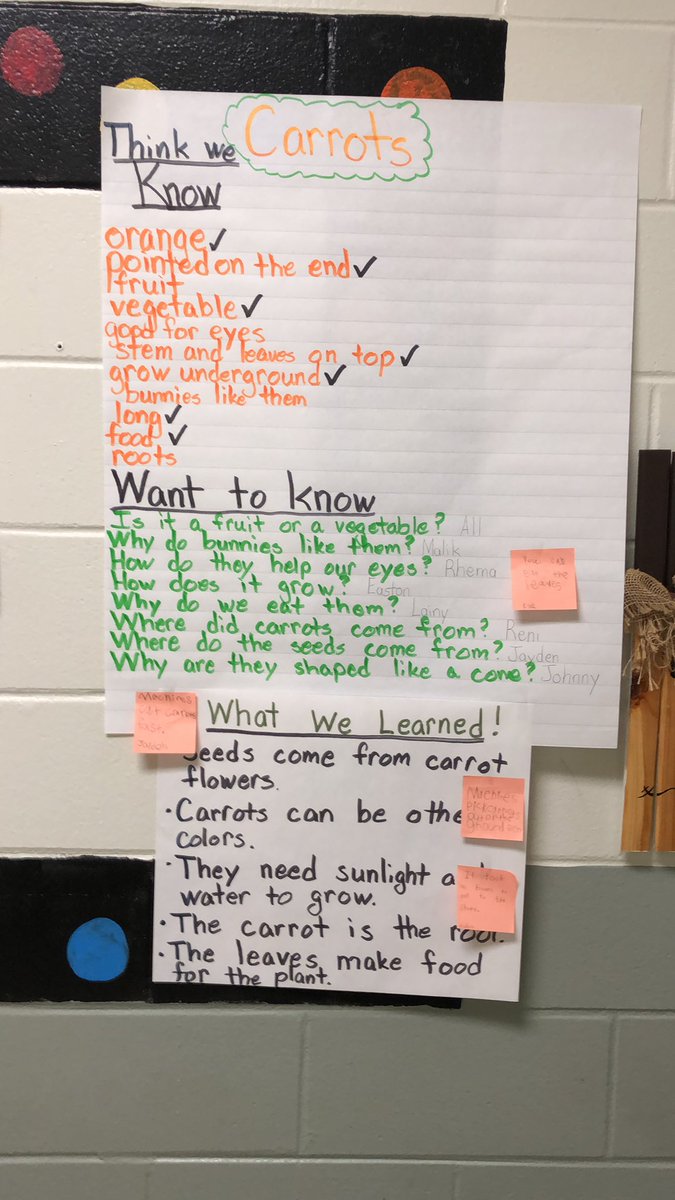 Carrots
Think we
Know
orange ✓
pointed on the end ✓
fruit
vegetable ✓
good for eyes
stem and leaves on top ✓
grow underground ✓
bunnies like them
long ✓
food ✓
roots
Want to know
Is it a fruit or a vegetable? All
Why do bunnies like them? Malik
How do they help our eyes? Rhema
How does it grow? Easton
Why do we eat them? Lainy
Where did carrots come from? Remi
Where do the seeds come from? Jayden
Why are they shaped like a cone? Johnny
You can
the
leaves
Machines
carrots
What We Learned!
Seeds come from carrot
flowers.
• Carrots can be othe
colors.
• They need sunlight a
water to grow.
• The carrot is the root.
• The leaves make food
for the plant.